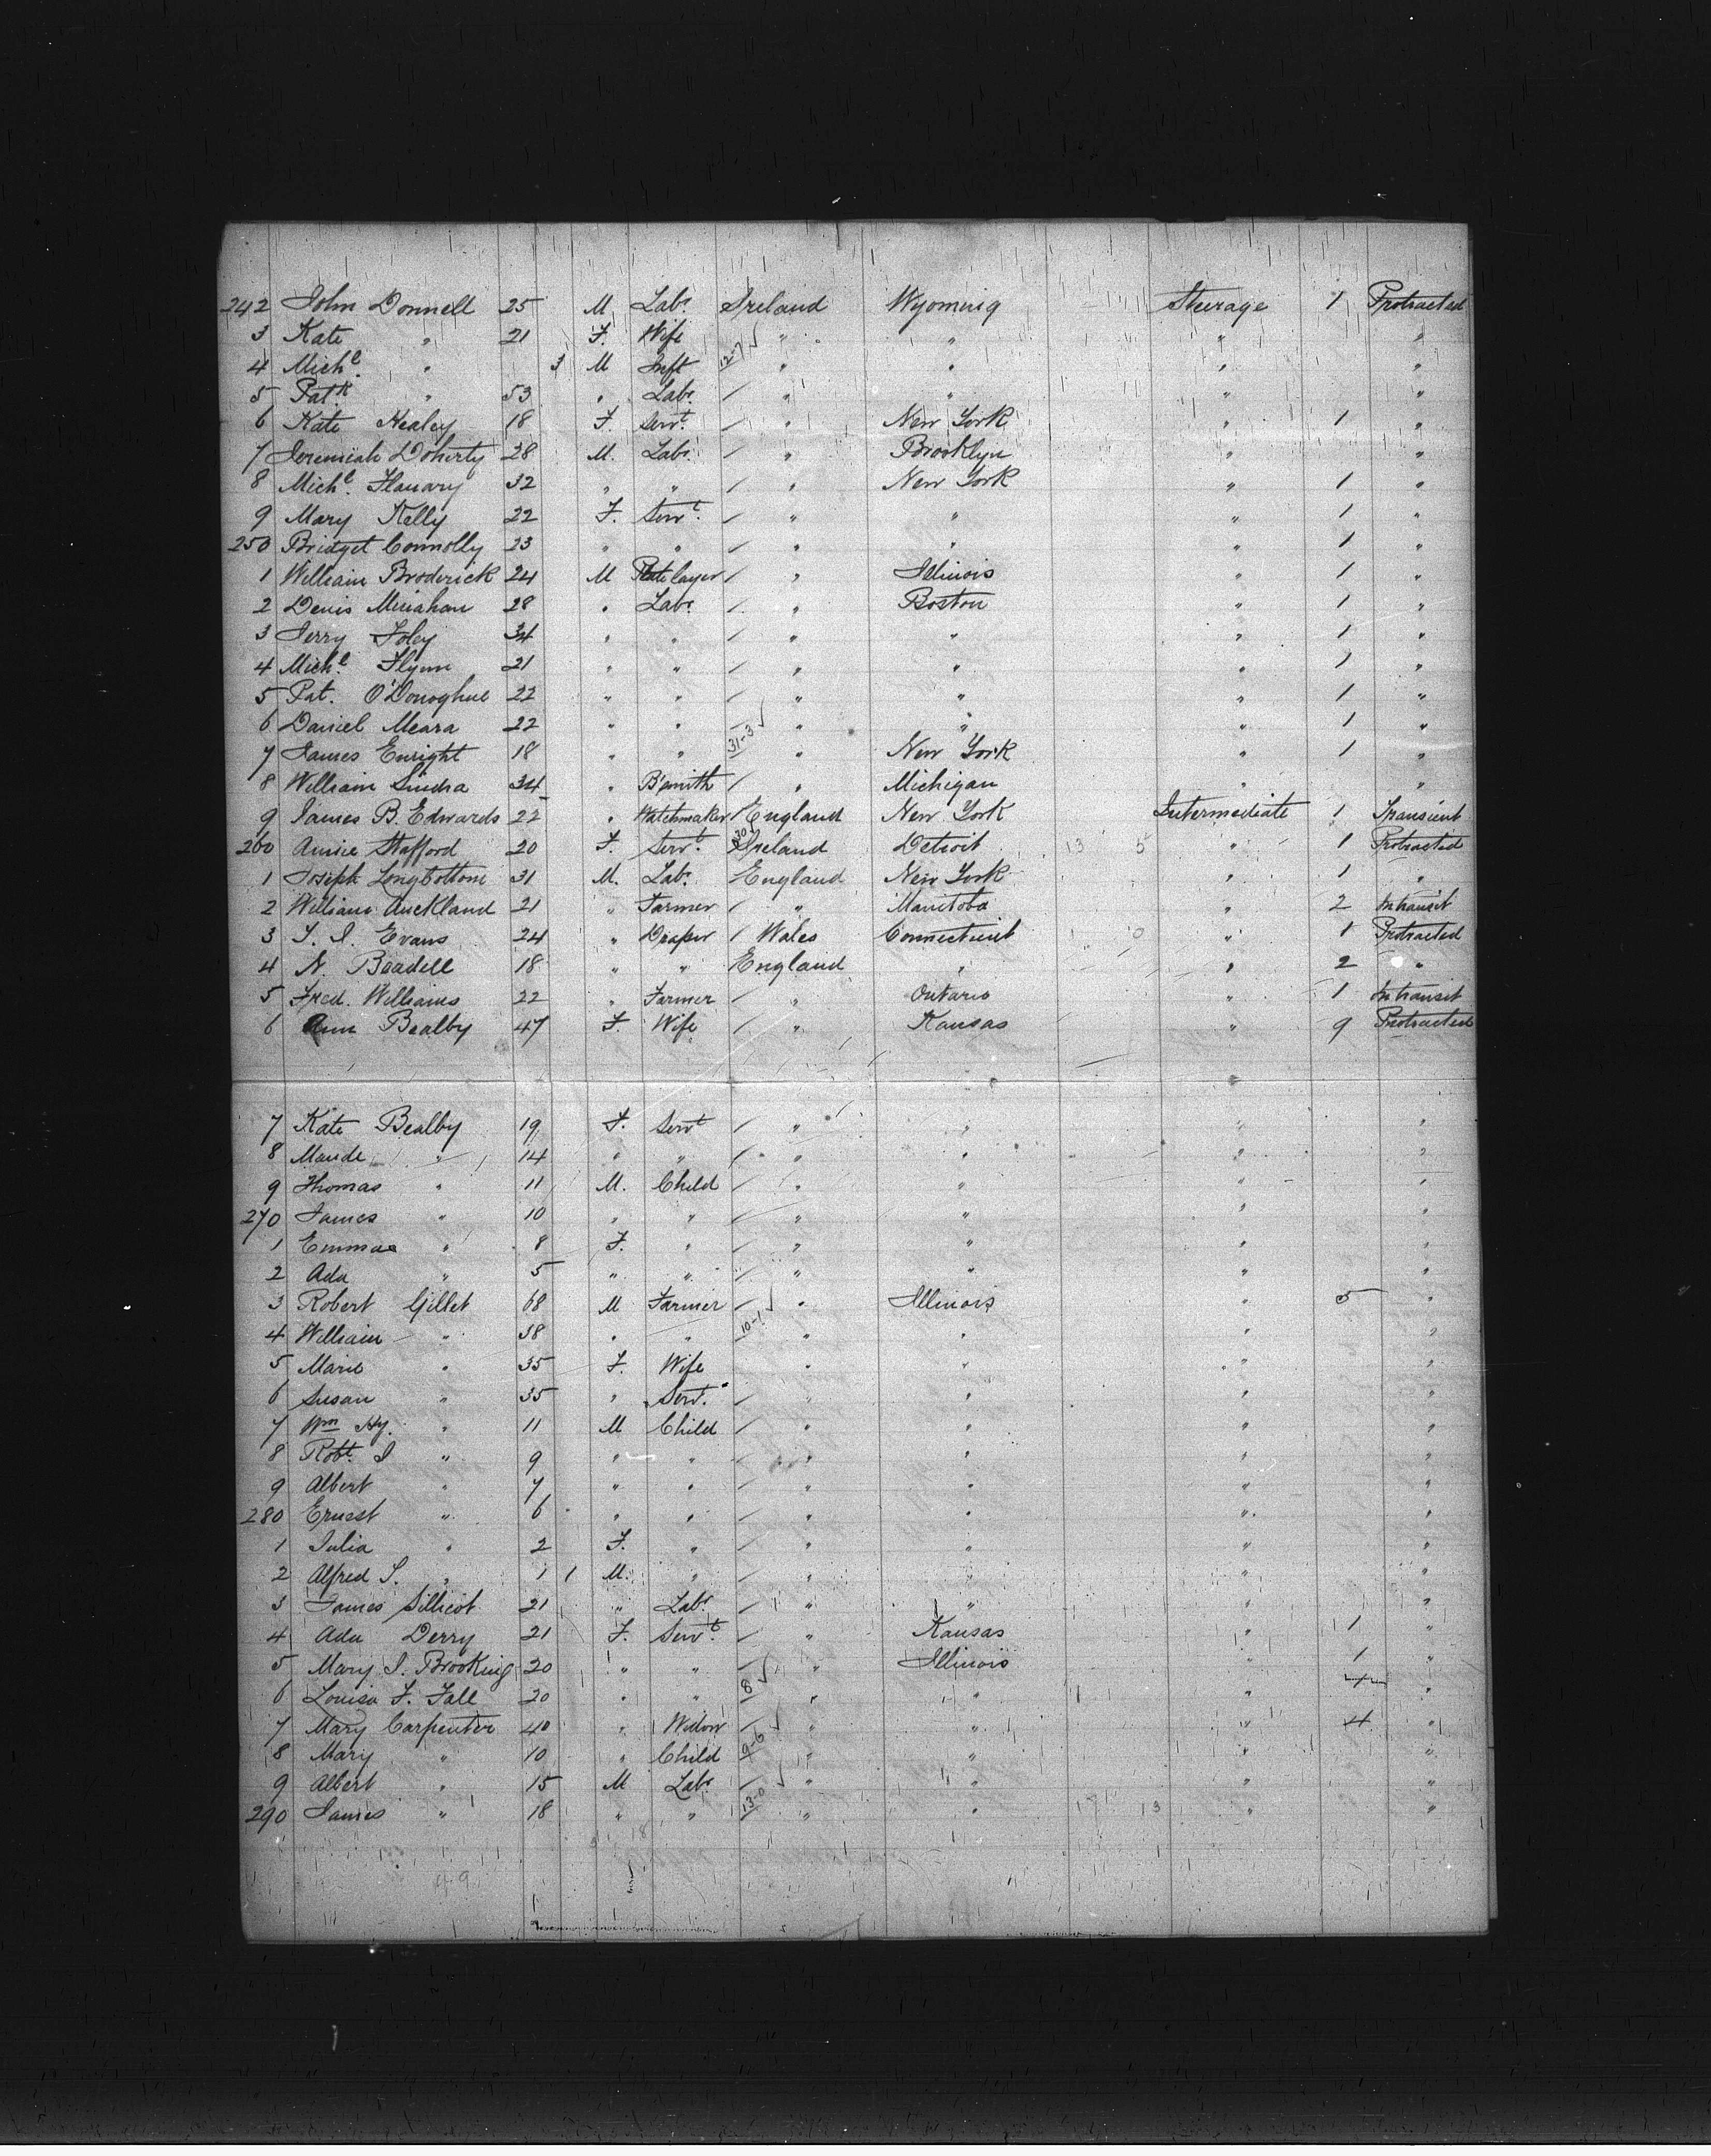 242 John Donnell 25 M Labr Ireland Wyoming Steerage 1 Protracted
3 Kate " 21 F. Wife " " " "
4 Michl " 3 M Inft 12-7 " " " "
5 Patk " 53 " Labr " " " "
6 Kate Healey 18 F. Servt " New York " 1 "
7 Jeremiah Doherty 28 M. Labr " Brooklyn " "
8 Michl Flanary 32 " " " New York " 1 "
9 Mary Kelly 22 F. Servt " " " 1 "
250 Bridget Connolly 23 " " " " " 1 "
1 William Broderick 24 M Platelayer " Illinois " 1 "
2 Denis 28 " Labr " Boston " 1 "
3 Jerry Foley 34 " " " " " 1 "
4 Michl Flynn 21 " " " " " 1 "
5 Pat. O'Donoghue 22 " " " " " 1 "
6 Daniel Meara 22 " " " " " 1 "
7 James Enright 18 " " 31-3 " New York " 1 "
8 William 34 " B'smith " Michigan " "
9 James B. Edwards 22 " Watchmaker England New York Intermediate 1 Transient
260 Annie Stafford 20 F. Servt Ireland Detroit 13 5 " 1 Protracted
1 Joseph Longbottom 31 M. Labr England New York " 1 "
2 William Auckland 21 " Farmer " Manitoba " 2 Intransit
3 T. J. Evans 24 " Draper Wales Connecticut " 1 Protracted
4 N. Beadell 18 " " England " " 2 "
5 Fred. Williams 22 " Farmer " Ontario " 1 Intransit
6 Ann Bealby 47 F. Wife " Kansas " 9 Protracted
7 Kate Bealby 19 F. Servt " " " "
8 Maude " 14 " " " " " "
9 Thomas " 11 M. Child " " " "
270 James " 10 " " " " " "
1 Emma " 8 F. " " " " "
2 Ada " 5 " " " " " "
3 Robert Gillet 68 M Farmer " Illinois " 5 "
4 William " 38 " " 10-1 " " " "
5 Marie " 35 F. Wife " " " "
6 Susan " 35 " Servt. " " " "
7 Wm Hy. " 11 M Child " " " "
8 Robt. J " 9 " " " " " "
9 Albert " 7 " " " " " "
280 Ernest " 6 " " " " " "
1 Julia " 2 F. " " " " "
2 Alfred S. " 1 1 M. " " " " "
3 James Sillicot 21 " Labr " " " "
4 Ada Derry 21 F. Servt " Kansas " 1 "
5 Mary J. Brooking 20 " " " Illinois " 1 "
6 Louisa F. Fall 20 " " 8 " " " "
7 Mary Carpenter 40 " Widow " " " 4 "
8 Mary " 10 " Child 9-6 " " " "
9 Albert " 15 M Labr " " " "
290 James " 18 " " 13-0 " " " "